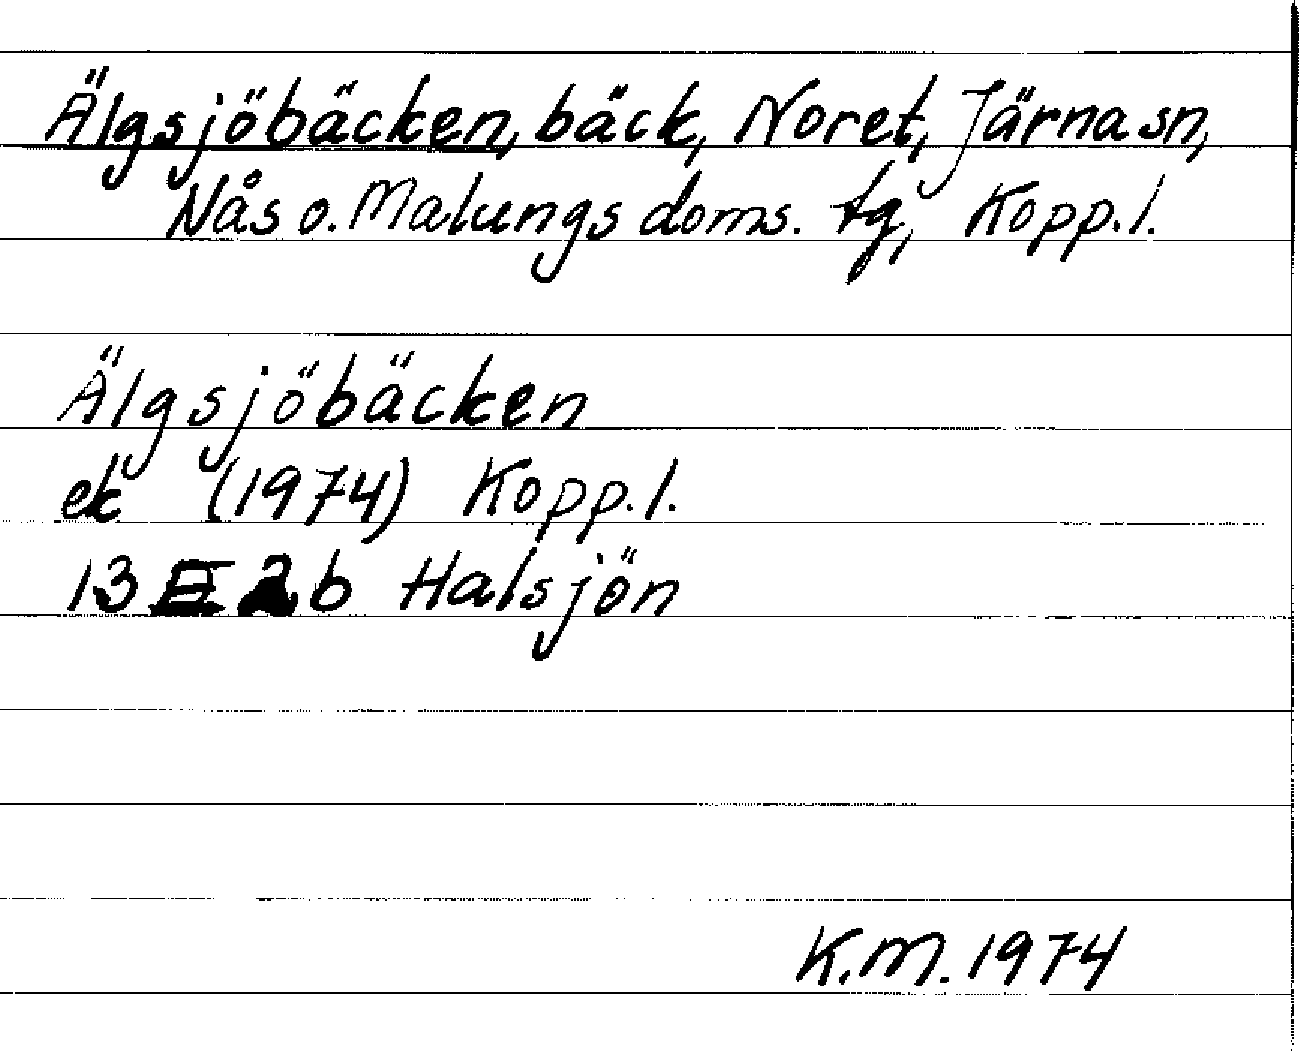 Älgsjöbäcken, bäck, Noret, Järna sn,
Nås o. Malungs doms. tg, Kopp.l.
Älgsjöbäcken
ek (1974) Kopp.l.
13 E 2b Halsjön
K.M. 1974